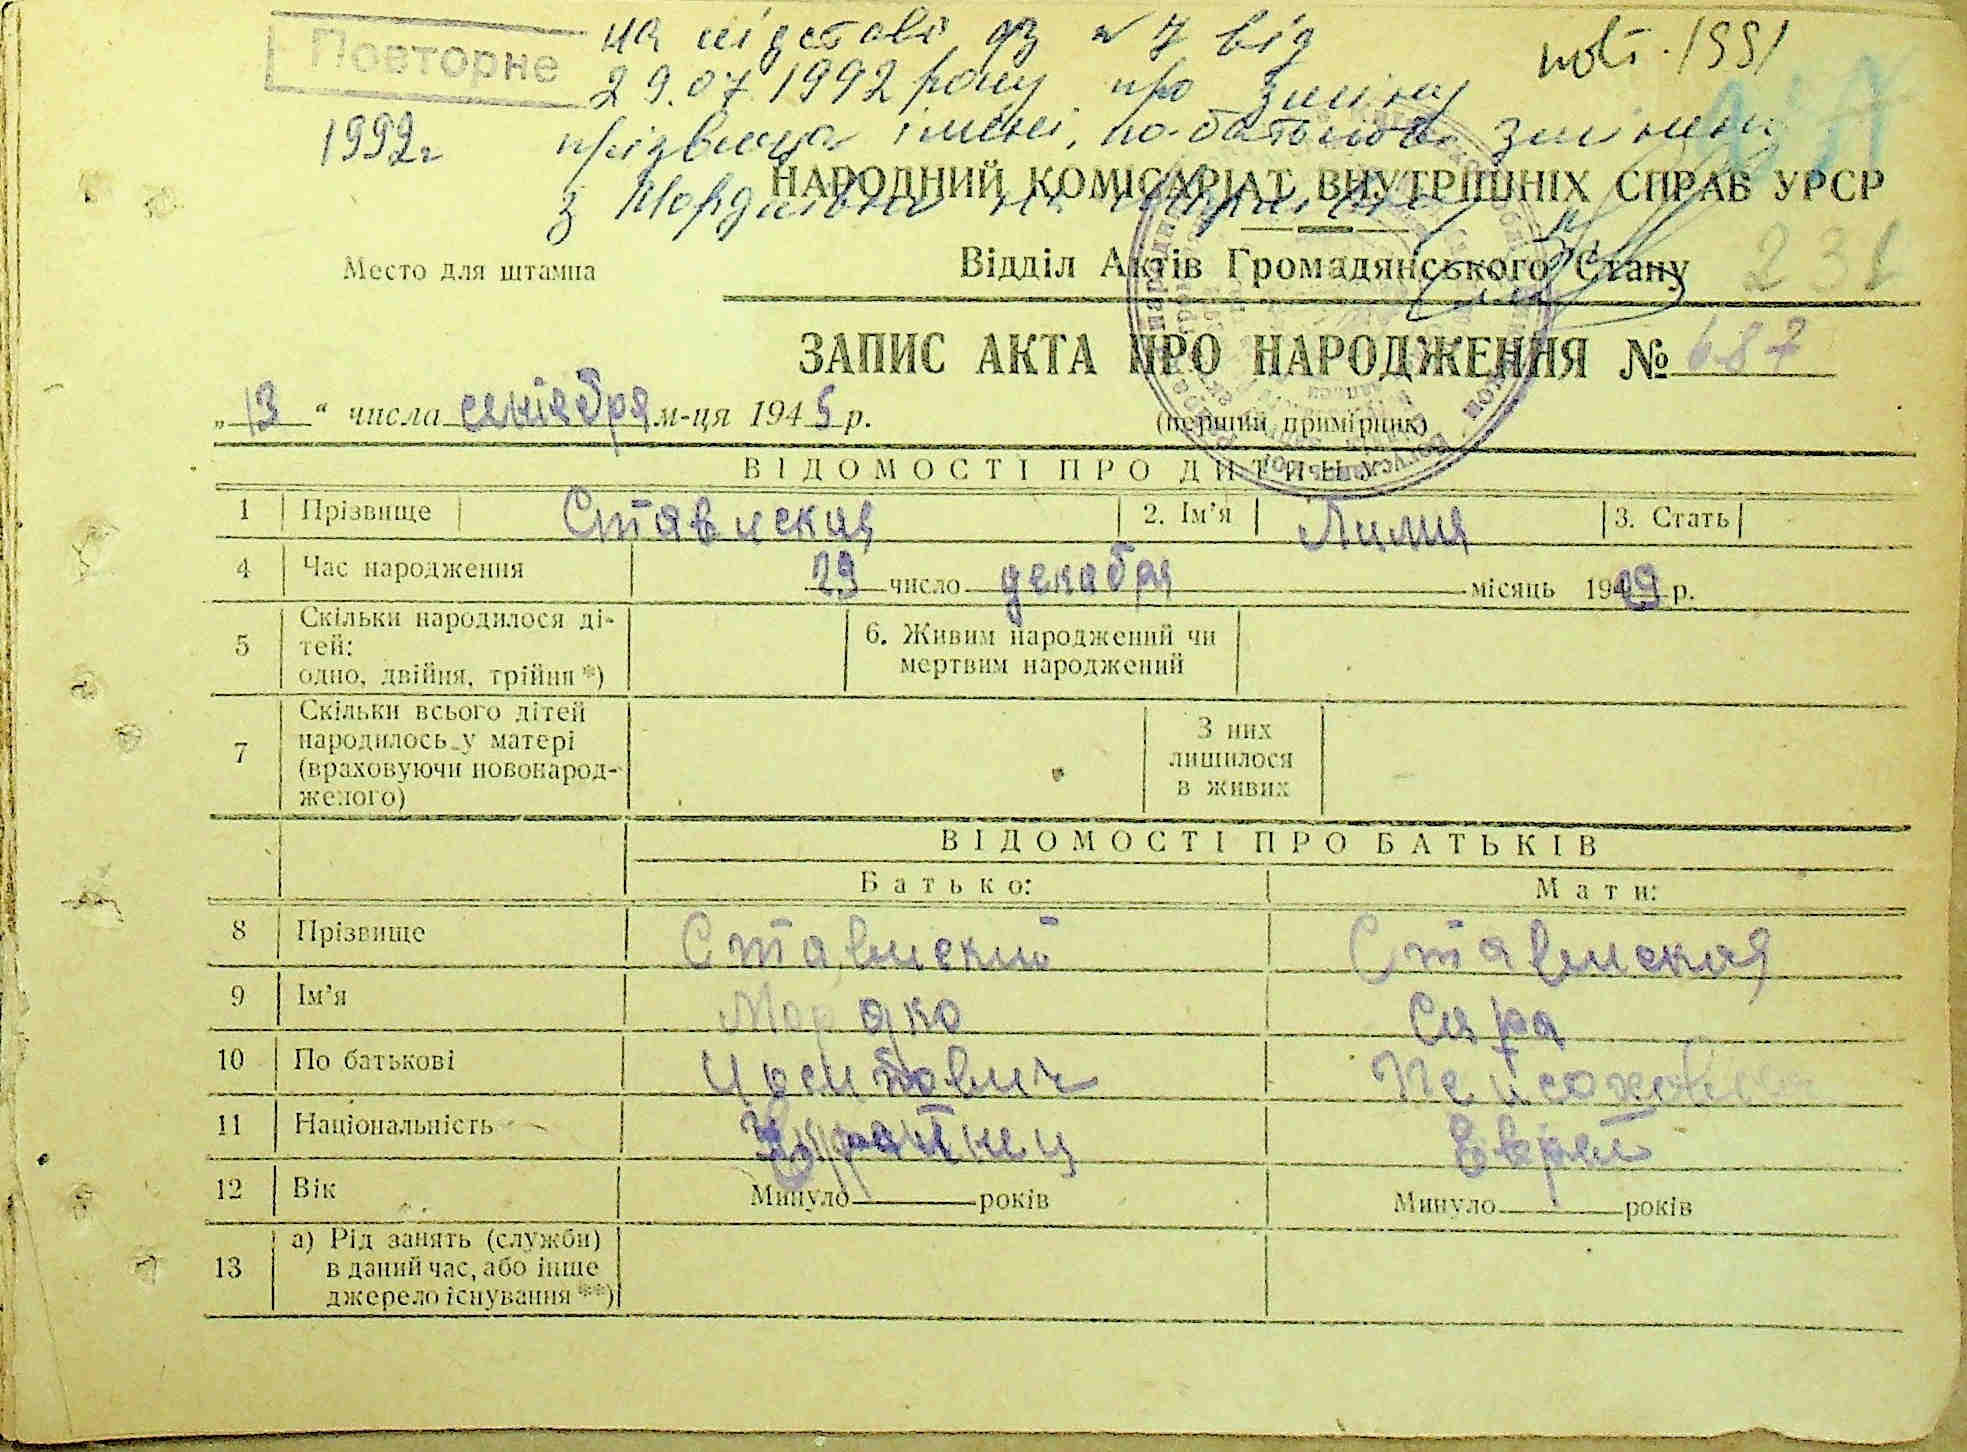 Повторне
на підставі аз № 7 від
29.07.1992 року про зміну
1992г
прізвища імені, по-батькові змінено
з Мордківни на
1991
НАРОДНИЙ КОМІСАРІАТ ВНУТРІШНІХ СПРАВ УРСР
Место для штампа
Відділ Актів Громадянського Стану
231
ЗАПИС АКТА ПРО НАРОДЖЕННЯ № 687
„13“ числа сентября м-ця 1945 р.
(перший примірник)
ВІДОМОСТІ ПРО ДИТИНУ
1 Прізвище Ставиская 2. Ім'я Лилия 3. Стать
4 Час народження 29 число декабря місяць 1939 р.
5 Скільки народилося ді-
тей:
одно, двійня, трійня *)
6. Живим народжений чи
мертвим народжений
7 Скільки всього дітей
народилось у матері
(враховуючи новонарод-
женого)
З них
лишилося
в живих
ВІДОМОСТІ ПРО БАТЬКІВ
Батько: Мати:
8 Прізвище Ставиский Ставиская
9 Ім'я Мордко Сара
10 По батькові Иосипович
11 Національність Украинец Еврей
12 Вік Минуло років Минуло років
13 а) Рід занять (служби)
в даний час, або інше
джерело існування **)